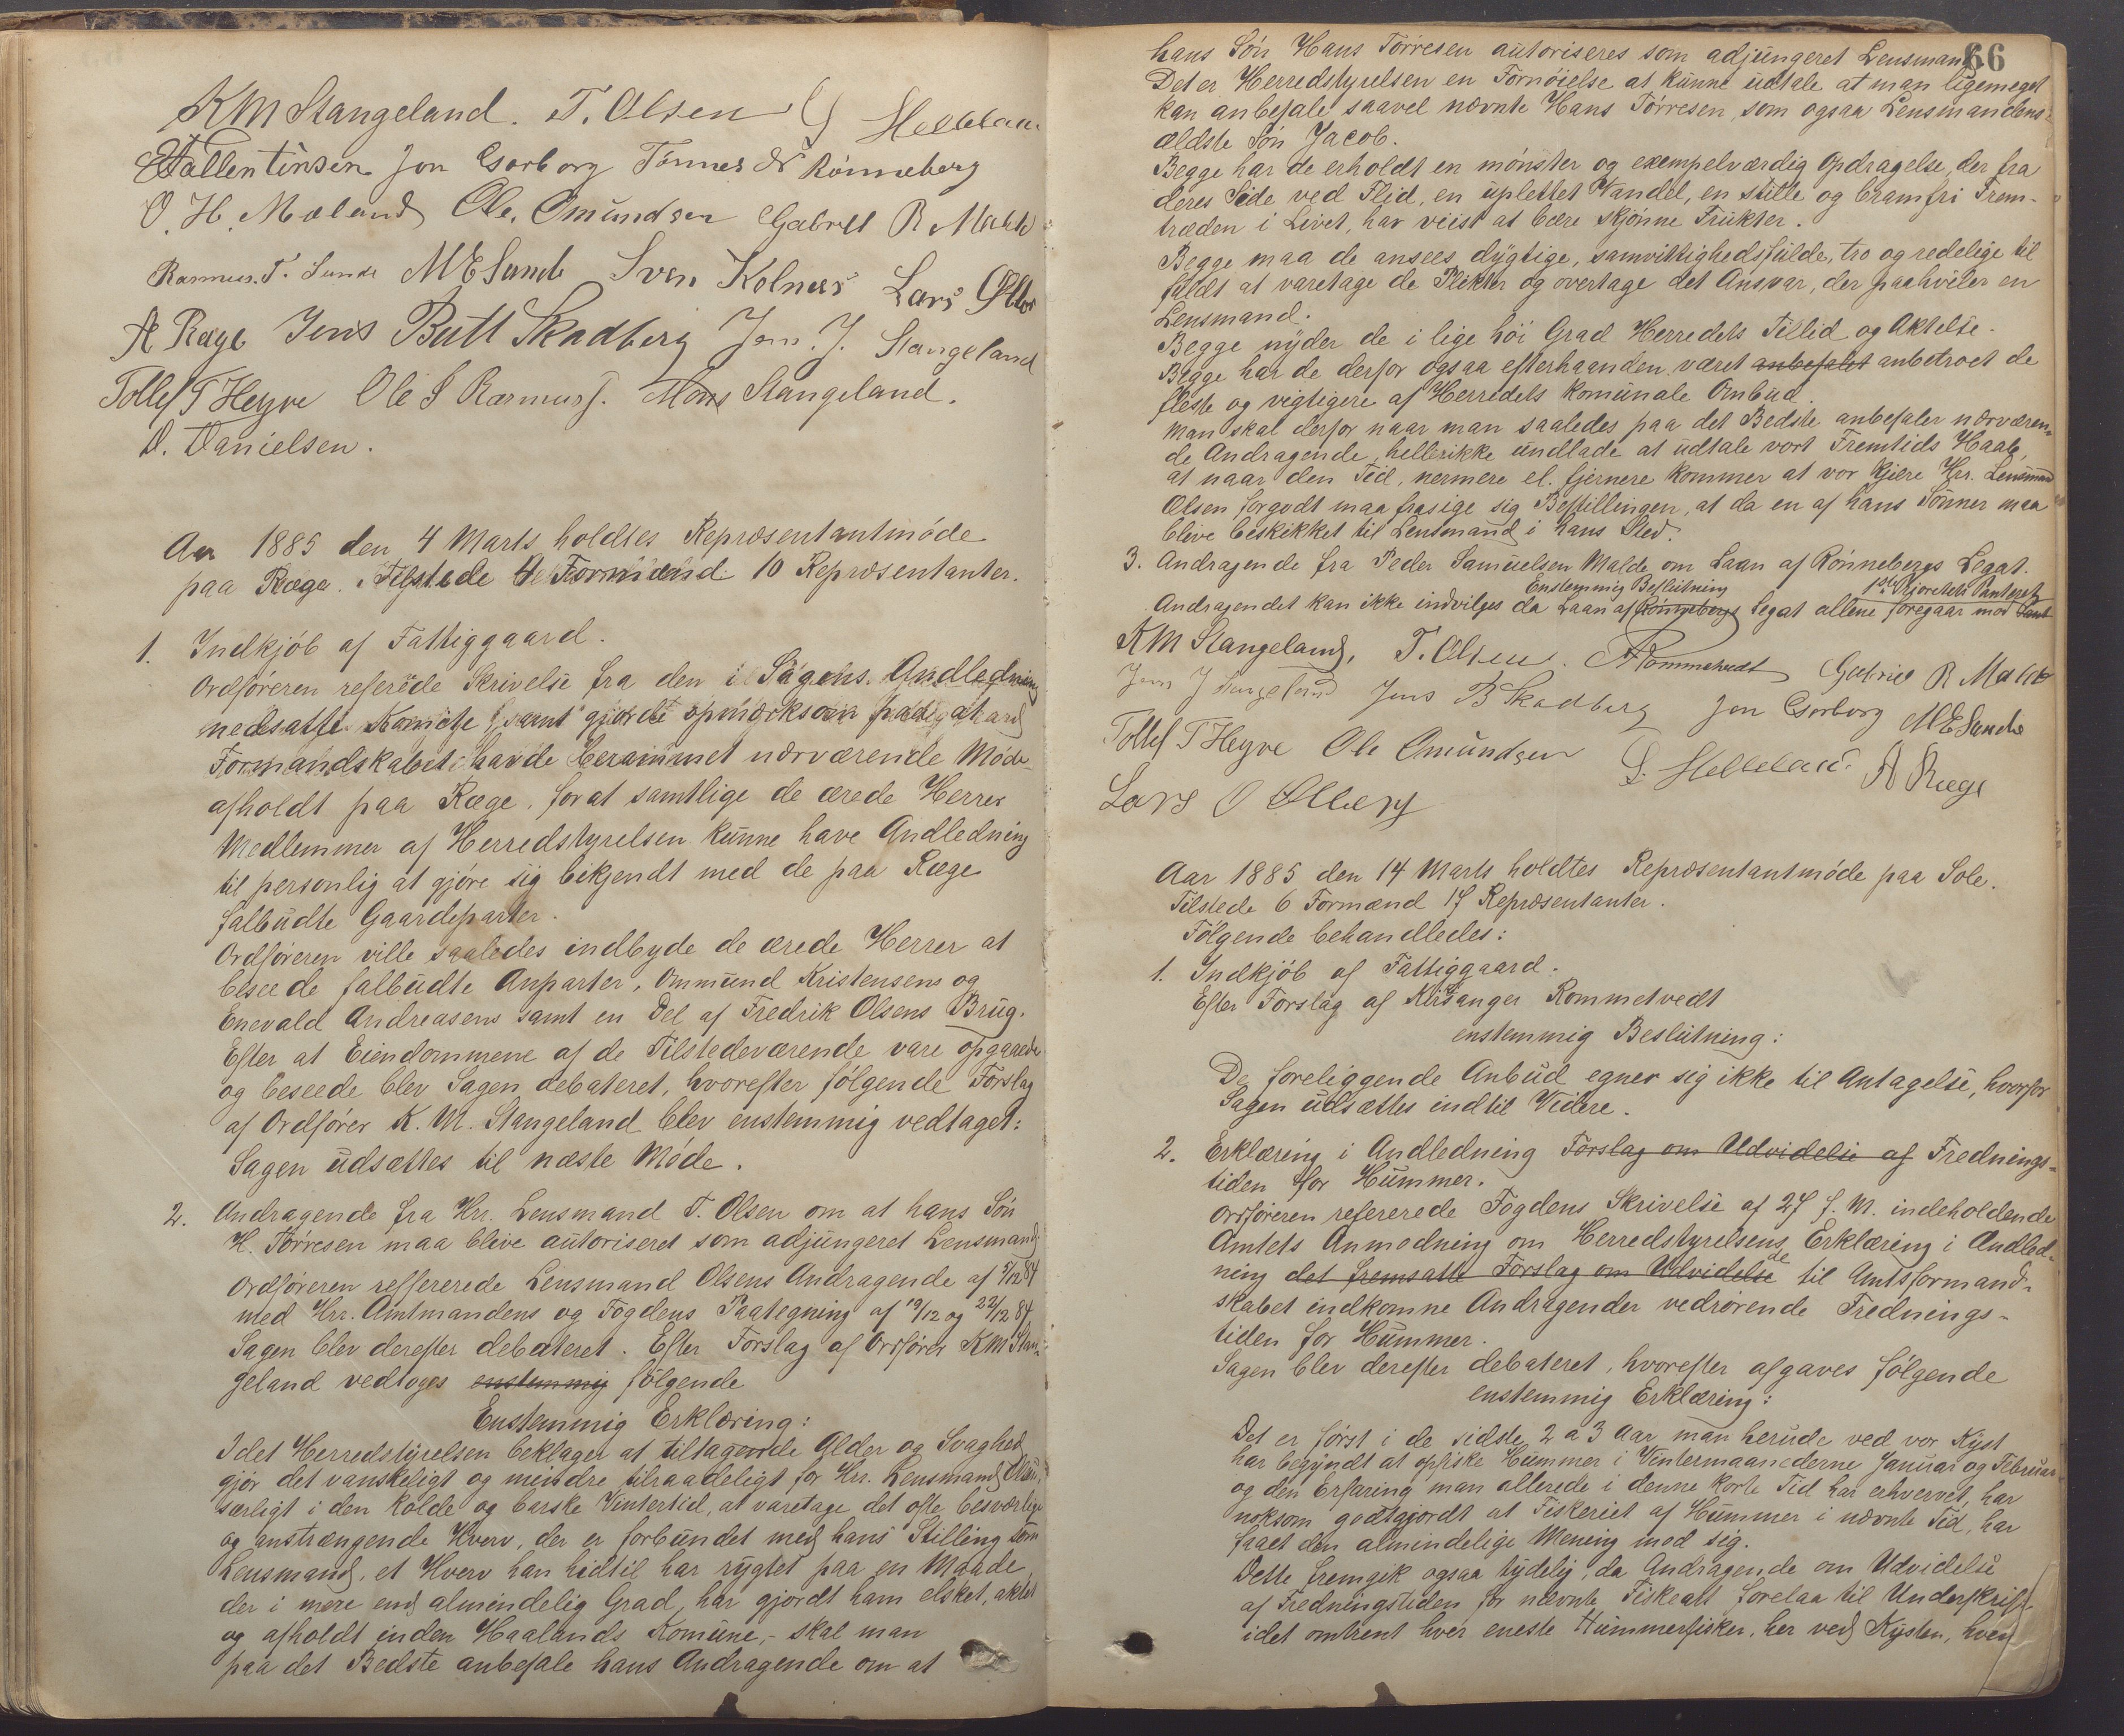 KM Stangeland. T. Olsen
E Fallentinsen Jon Gorborg Tønnes Rönneberg
O. H. Mæland Ole Omundsen Gabriel R Malde
Rasmus. T. Sunde M E Sunde Sven Kolnes Lars Ølber
A Ræge Jens Butt Skadberg Jon. J. Stangeland
Tollef T Heyre Ole S Rasmus. Mons Stangeland.
D. Danielsen.
Aar 1885 den 4 Marts holdtes Repræsentantmöde
paa Ræge. Tilstede 4 Formænd 10 Repræsentanter.
1. Indkjöb af Fattiggaard.
Ordföreren refererede Skrivelse fra den i Sagens Andledning
nedsatte Komite samt gjorde opmærksom paa at
Formandskabet havde berammet nærværende Möde
afholdt paa Ræge, for at samtlige de ærede Herrer
Medlemmer af Herredstyrelsen kunne have Andledning
til personlig at gjöre sig bekjendt med de paa Ræge
falbudte Gaardeparter.
Ordföreren ville saaledes indbyde de ærede Herrer at
besee de falbudte Anparter, Ommund Kristensens og
Enevald Andreasens samt en Del af Fredrik Olsens Brug.
Efter at Eiendommene af de Tilstedeværende vare opgaaede
og beseede blev Sagen debateret, hvorefter fölgende Forslag
af Ordförer K. M. Stangeland blev enstemmig vedtaget:
Sagen udsættes til næste Möde.
2. Andragende fra Hrr. Lensmand T. Olsen om at hans Sön
H. Törresen maa blive autoriseret som adjungeret Lensmand
Ordföreren reffererede Lensmand Olsens Andragende af 5/12 84
med Hrr. Amtmandens og Fogdens Paategning af 19/12 og 22/12 84
Sagen blev derefter debateret. Efter Forslag af Ordförer KM Stan-
geland vedtoges enstemmig fölgende
Enstemmig Erklæring:
Idet Herredstyrelsen beklager at tiltagende Alder og Svaghed
gjör det vanskeligt og mindre tilraadeligt for Hrr. Lensmand Olsen,
særligt i den kolde og barske Vintertid, at varetage det ofte besværlige
og anstrængende Hverv, der er forbundet med hans Stilling som
Lensmand, et Hverv han hidtil har rygtet paa en Maade,
der i mere end almindelig Grad, har gjordt ham elsket, aktet
og afholdt inden Haalands Komune, - skal man
paa det Bedste anbefale hans Andragende om at
66
hans Sön Hans Törresen autoriseres som adjungeret Lensmand.
Det er Herredstyrelsen en Fornöielse at kunne udtale at man ligemeget
kan anbefale saavel nævnte Hans Törresen, som ogsaa Lensmandens
ældste Sön Jacob.
Begge har de erholdt en mönster og exempelværdig Opdragelse, der fra
deres Side ved Flid, en uplettet Vandel, en stille og bramfri Frem-
træden i Livet, har veist at bære skjönne Frukter.
Begge maa de ansees dygtige, samvittighedsfulde, tro og redelige til
fuldt at varetage de Plikter og overtage det Ansvar, der paahviler en
Lensmand.
Begge nyder de i lige höi Grad Herredets Tillid og Aktelse.
Begge har de derfor ogsaa efterhaanden været anbefalet anbetroet de
fleste og vigtigere af Herredets komunale Ombud.
Man skal derfor naar man saaledes paa det Bedste anbefaler nærværen-
de Andragende, hellerikke undlade at udtale vort Fremtids Haab,
at naar den Tid, nermere el. fjernere kommer at vor kjære Hrr. Lensmand
Olsen forgodt maa frasige sig Bestillingen, at da en af hans Sönner maa
blive beskikket til Lensmand i hans Sted.
3. Andragende fra Peder Samuelsen Malde om Laan af Rönnebergs Legat.
Enstemmig Beslutning 1ste Prioritets Panteret
Andragendet kan ikke indvilges da Laan af Rönnebergs Legat allene foregaar mod
KM Stangeland, T. Olsen. A Rommetvedt Gabriel R Malde
Jon J Stangeland Jens B Skadberg Jon Gorborg M E Sunde
Tollef T Heyre Ole Omundsen A Ræge
Lars O Ølberg
Aar 1885 den 14 Marts holdtes Repræsentantmöde paa Sole.
Tilstede 6 Formænd 17 Repræsentanter.
Fölgende behandledes:
1. Indkjöb af Fattiggaard.
Efter Forslag af Kirsanger Rommetvedt
enstemmig Beslutning:
De foreliggende Anbud egner sig ikke til Antagelse, hvorfor
Sagen udsættes indtil Videre.
2. Erklæring i Andledning Forslag om Udvidelse af Frednings-
tiden for Hummer.
Ordföreren refererede Fogdens Skrivelse af 27 f. M. indeholdende
Amtets Anmodning om Herredstyrelsens Erklæring i Andled-
ning det fremsatte Forslag om Udvidelse de til Amtsformand-
skabet indkomne Andragender vedrörende Frednings-
tiden for Hummer.
Sagen blev derefter debateret, hvorefter afgaves fölgende
enstemmig Erklæring:
Det er först i de sidste 2 a 3 Aar man herude ved vor Kyst
har begyndt at opfiske Hummer i Vintermaanederne Januar og Februar
og den Erfaring man allerede i denne korte Tid har erhvervet, har
noksom godtgjordt at Fiskeriet af Hummer i nævnte Tid, har
faaet den almindelige Mening mod sig.
Dette fremgik ogsaa tydelig, da Andragende om Udvidelse
af Fredningstiden for nævnte Fiskeart forelaa til Underskrift
idet omtrent hver eneste Hummerfisker, her ved Kysten, hver